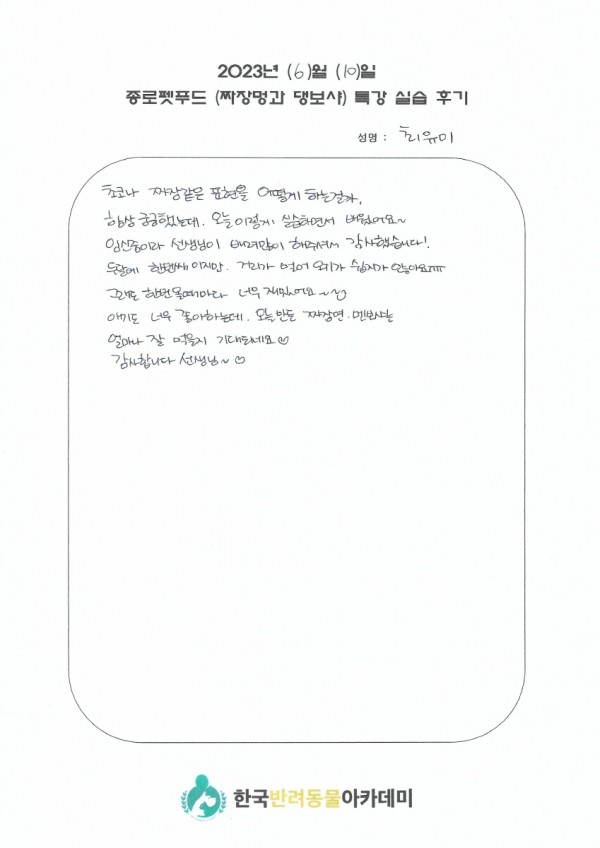 2023년 (6)월 (10)일
종로펫푸드 (짜장멍과 댕보샤) 특강 실습 후기
성명 : 최유미
초코나 짜장같은 표현을 어떻게 하는걸까,
항상 궁금했는데, 오늘 이렇게 실습하면서 배웠어요~
임신중이라 선생님이 배려많이 해주셔서 감사했습니다!
두달에 한번씩이지만, 거리가 멀어 오기가 쉽지가 않아요ㅠㅠ
그래도 한번올때마다 너무 재밌어요~
애기도 너무 좋아하는데, 오늘만든 짜장면, 멘보샤는
얼마나 잘 먹을지 기대되네요♡
감사합니다 선생님~♡
한국반려동물아카데미